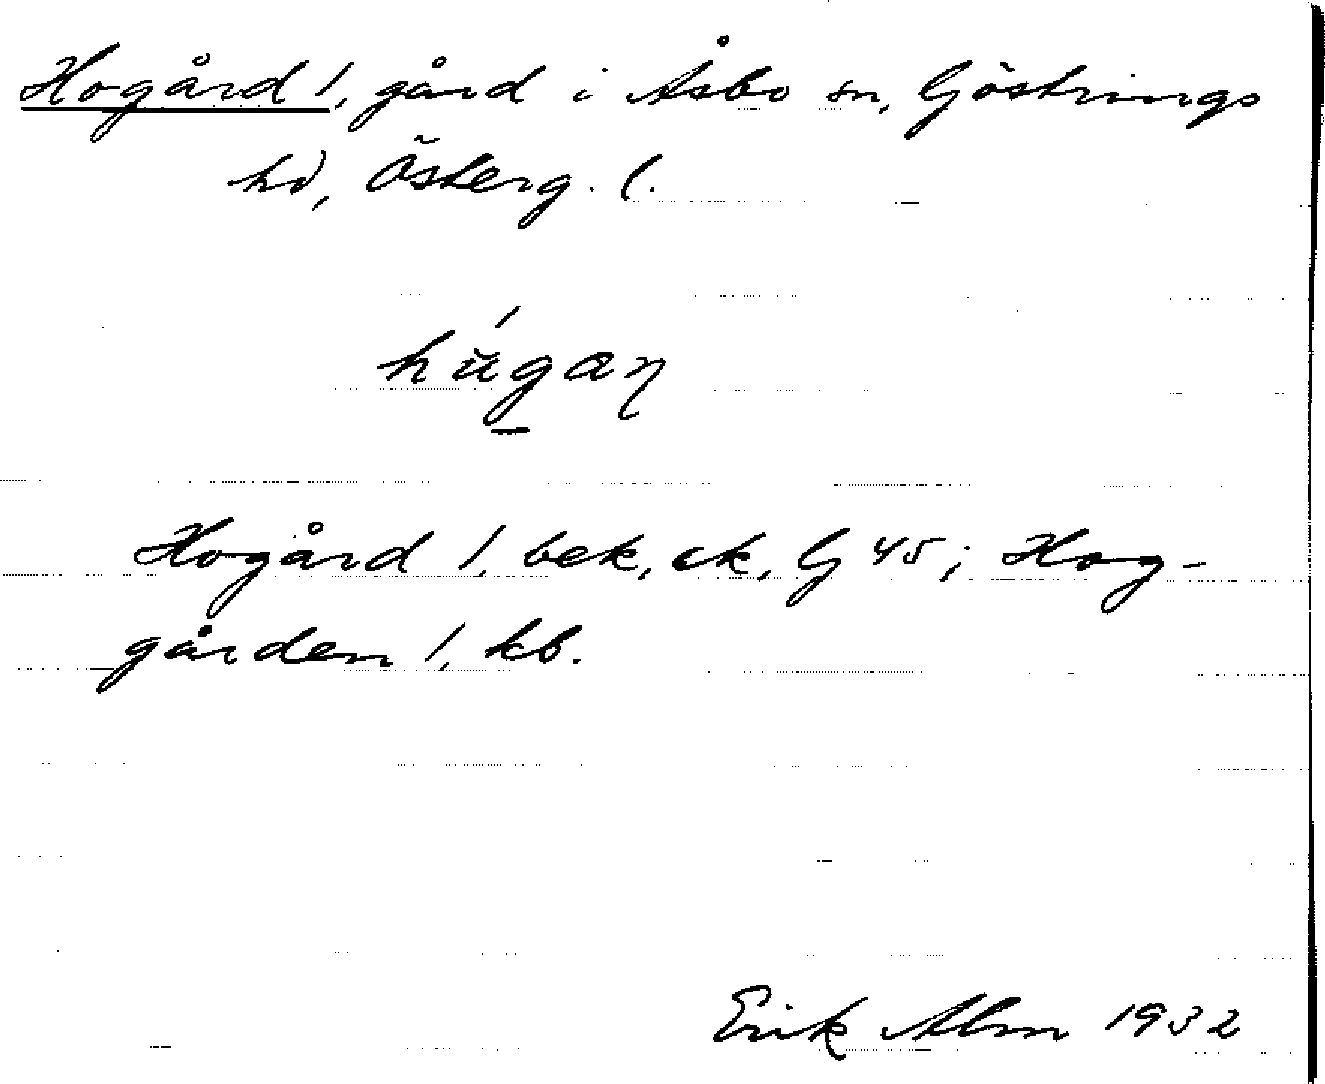 Hogård 1, gård i Åsbo sn, Göstrings
hd, Österg. l.
Hogård 1, bek, ek, G 45; Hog-
gården 1, kb.
Erik Alm 1932